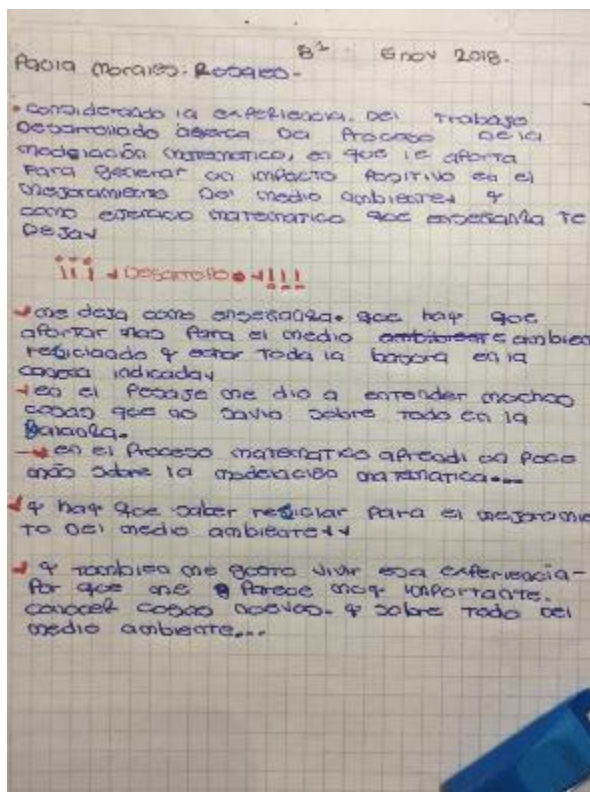 8² 6 nov 2018.
Paola Morales Rosales.
• considerando la experiencia. Del trabajo
Desarrollado acerca Del Proceso De la
modelación matematico, en que le aporta
Para generar un impacto Positivo en el
mejoramiento Del medio ambiente y
como ejercicio matematico que enseñanza te
Deja
¡¡¡ Desarrollo !!!
me deja como enseñanza. que hay que
aportar mas Para el medio ambien
reciclando y echar Toda la basura en la
caneca indicada
en el Pesaje me dio a entender muchas
cosas que no savia sobre todo en la
Balanza.
en el Proceso matematico aprendi un Poco
más sobre la modelación matematica...
y hay que saber reciclar Para el mejoramie
to Del medio ambiente
y tambien me gusto vivir esa experiencia-
Por que me Parece muy importante.
conocer cosas nuevas. y sobre todo Del
medio ambiente...